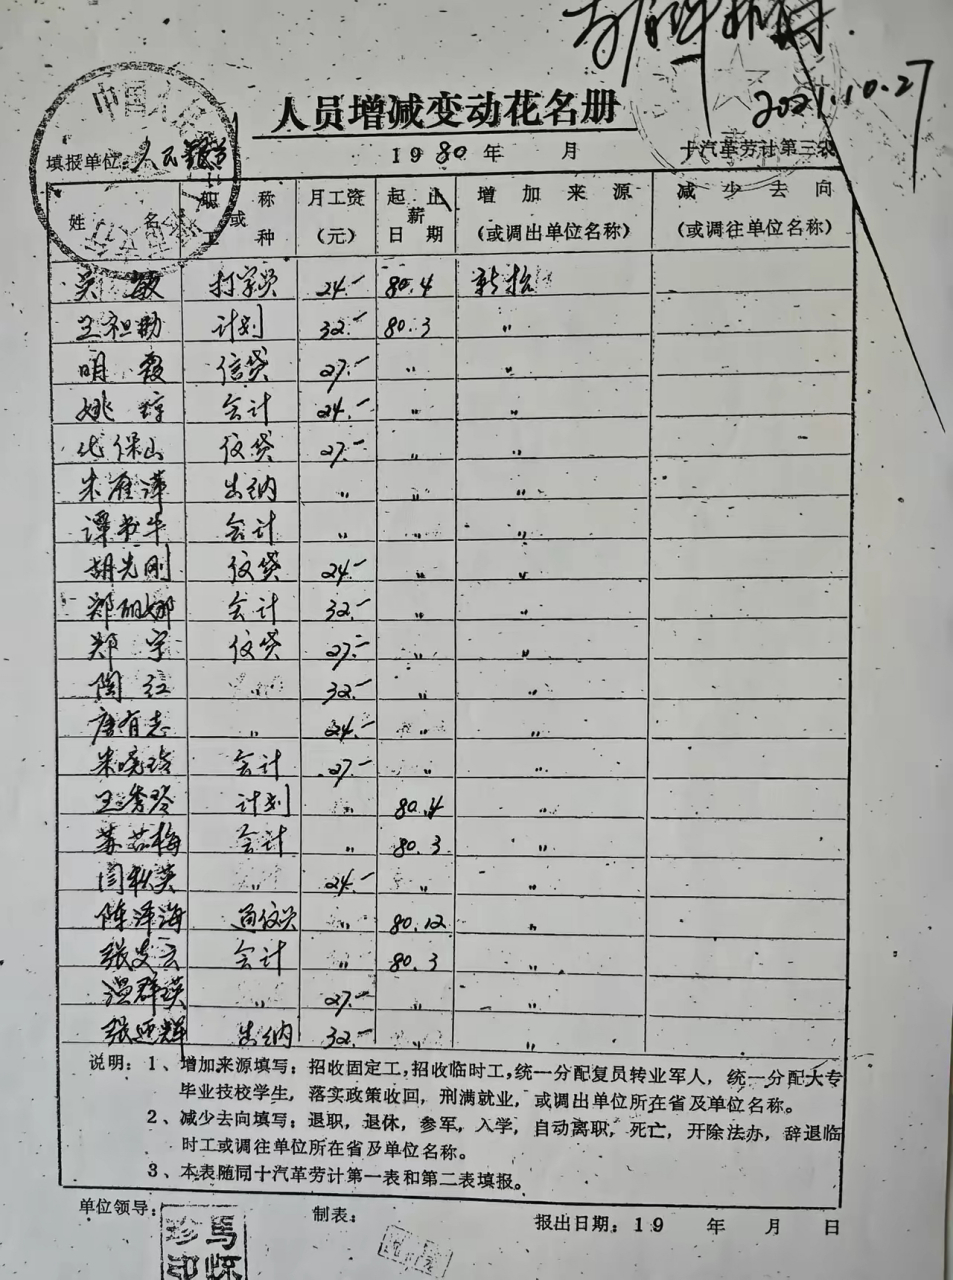 2021.10.27
人员增减变动花名册
填报单位：人民银行 1980年 月 十汽革劳计第三表
姓名 职称或工种 月工资（元） 起止薪日期 增加来源（或调出单位名称） 减少去向（或调往单位名称）
吴敏 打字员 24.- 80.4 新招
王祖勋 计划 32.- 80.3 〃
明霞 信贷 27.- 〃 〃
姚 会计 24.- 〃 〃
代保山 信贷 27.- 〃 〃
朱雁萍 出纳 〃 〃 〃
谭书华 会计 〃 〃 〃
胡光刚 信贷 24.- 〃 〃
郑丽娜 会计 32.- 〃 〃
郑宇 信贷 27.- 〃 〃
陶红 〃 32.- 〃 〃
唐有志 〃 24.- 〃 〃
朱晓玲 会计 27.- 〃 〃
王秀琴 计划 〃 80.4 〃
苏茹梅 会计 〃 80.3 〃
闫秋英 〃 24.- 〃 〃
陈泽海 〃 80.12 〃
张支云 会计 〃 80.3 〃
温群瑛 〃 27.- 〃 〃
张延辉 出纳 32.- 〃 〃
说明：1、增加来源填写：招收固定工，招收临时工，统一分配复员转业军人，统一分配大专
毕业技校学生，落实政策收回，刑满就业，或调出单位所在省及单位名称。
2、减少去向填写：退职，退休，参军，入学，自动离职，死亡，开除法办，辞退临
时工或调往单位所在省及单位名称。
3、本表随同十汽革劳计第一表和第二表填报。
单位领导： 制表： 报出日期：19 年 月 日